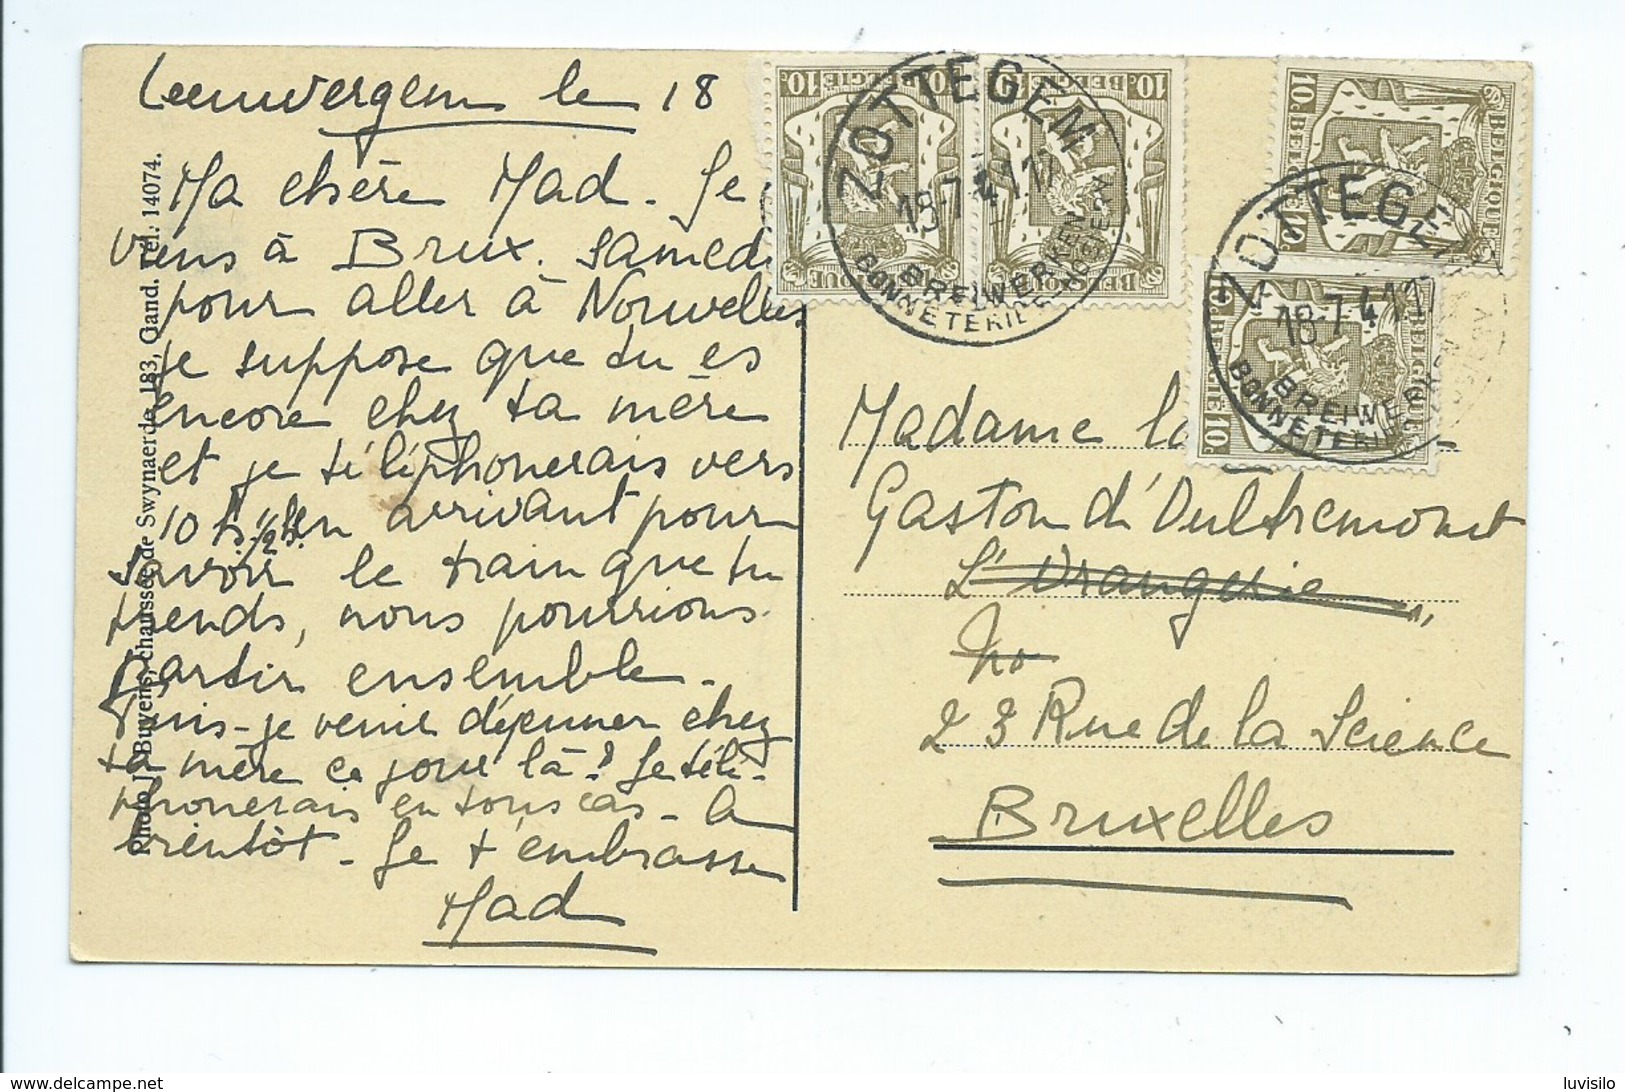 Leeuwergem le 18
Ma chère Mad. Je
viens à Brux. samedi
pour aller à Nouvelles
je suppose que tu es
encore chez ta mère
et je téléphonerais vers
10 hs 1/2 en arrivant pour
savoir le train que tu
prends, nous pourrions
partir ensemble.
Puis-je venir déjeuner chez
ta mère ce jour là? Je télé-
phonerais en tous cas - A
bientôt - Je t'embrasse
Mad
Photo J. Buyens, chaussée de Swynaerde, 183, Gand. Tél. 14074.
10c BELGIE 10c
BELGIQUE
10c BELGIE
BELGIQUE
ZOTTEGEM
18-7-41.17
BREIWERKEN
BONNETERIE
10c BELGIE 10c
BELGIQUE
BELGIE 10c
BELGIQUE
ZOTTEGEM
18-7-41.17
BREIWERKEN
BONNETERIE
Madame la
Gaston d'Oultremont
L'Orangerie
23 Rue de la Science
Bruxelles
delcampe.net
luvisilo